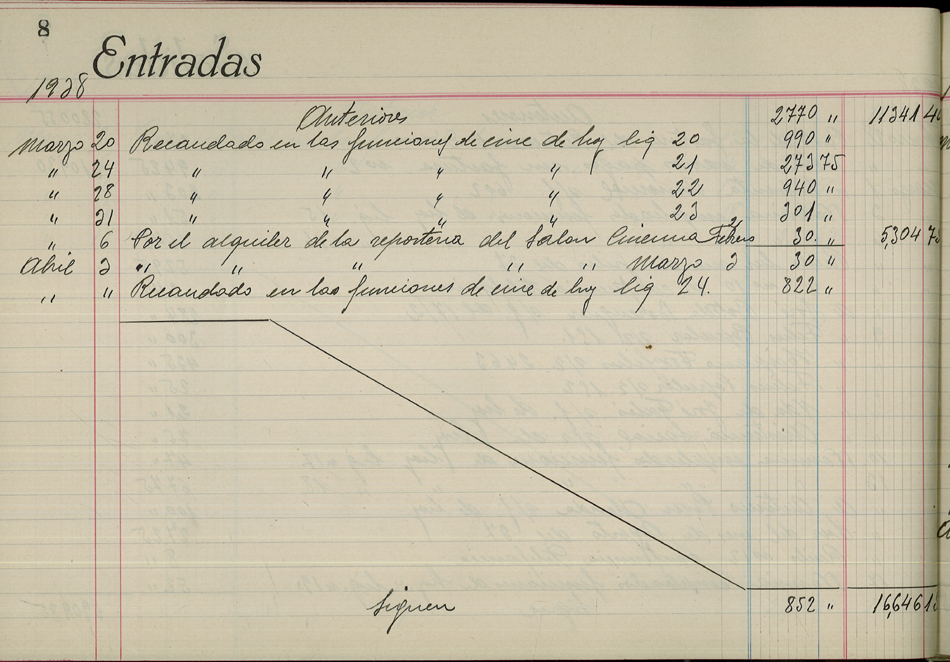 8
Entradas
1938
Anteriores 2770 " 11341 40
Marzo 20 Recaudado en las funciones de cine de hoy liq 20 990 "
" 24 " " " " 21 273 75
" 28 " " " " 22 940 "
" 31 " " " " 23 301 "
" 6 Por el alquiler de la reposteria del Salon Cinema Febrero 30. " 5,304 75
Abril 3 " " " " " Marzo 30 "
" " Recaudado en las funciones de cine de hoy liq 24. 822 "
Siguen 852 " 16,646 15